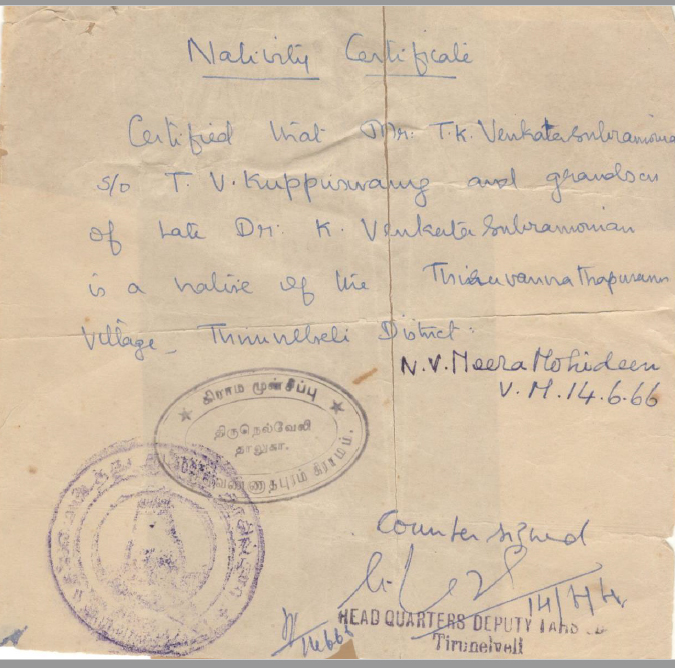 Nativity Certificate
Certified that Mr. T.K. Venkatasubramonia
s/o T. V. Kuppuswamy and grandson
of Late Dr. K. Venkatasubramonian
is a native of the
Village, Tirunelveli District.
N.V. Meera Mohideen
V. M. 14.6.66
கிராம முன்சீப்பு
திருநெல்வேலி
தாலுகா.
கிராமம்.
Counter signed
HEAD QUARTERS DEPUTY
Tirunelveli